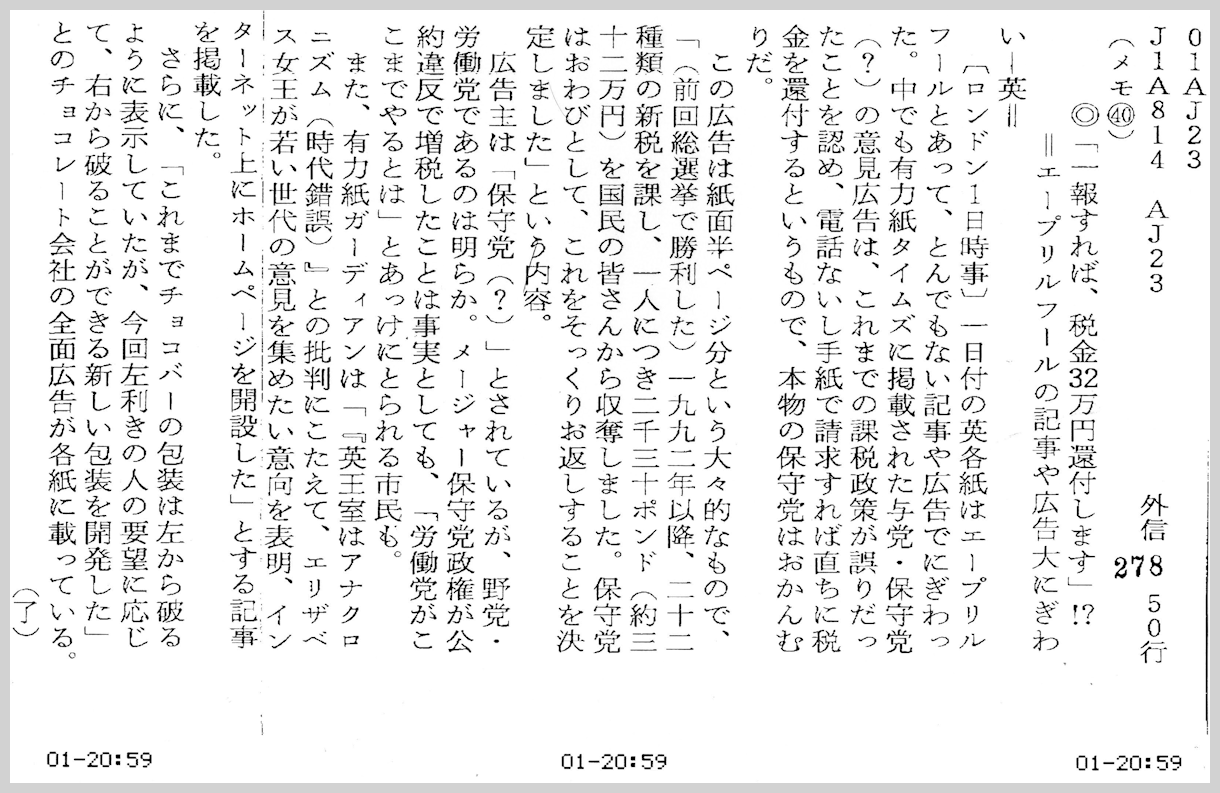 01AJ23
J1A814 AJ23 外信278 50行
(メモ㊵)
◎「一報すれば、税金32万円還付します」!?
=エープリルフールの記事や広告大にぎわ
い―英=
〔ロンドン1日時事〕一日付の英各紙はエープリル
フールとあって、とんでもない記事や広告でにぎわっ
た。中でも有力紙タイムズに掲載された与党・保守党
(?)の意見広告は、これまでの課税政策が誤りだっ
たことを認め、電話ないし手紙で請求すれば直ちに税
金を還付するというもので、本物の保守党はおかんむ
りだ。
この広告は紙面半ページ分という大々的なもので、
「(前回総選挙で勝利した)一九九二年以降、二十二
種類の新税を課し、一人につき二千三十ポンド(約三
十二万円)を国民の皆さんから収奪しました。保守党
はおわびとして、これをそっくりお返しすることを決
定しました」という内容。
広告主は「保守党(?)」とされているが、野党・
労働党であるのは明らか。メージャー保守党政権が公
約違反で増税したことは事実としても、「労働党がこ
こまでやるとは」とあっけにとられる市民も。
また、有力紙ガーディアンは「『英王室はアナクロ
ニズム(時代錯誤)』との批判にこたえて、エリザベ
ス女王が若い世代の意見を集めたい意向を表明、イン
ターネット上にホームページを開設した」とする記事
を掲載した。
さらに、「これまでチョコバーの包装は左から破る
ように表示していたが、今回左利きの人の要望に応じ
て、右から破ることができる新しい包装を開発した」
とのチョコレート会社の全面広告が各紙に載っている。
(了)
01-20:59
01-20:59
01-20:59